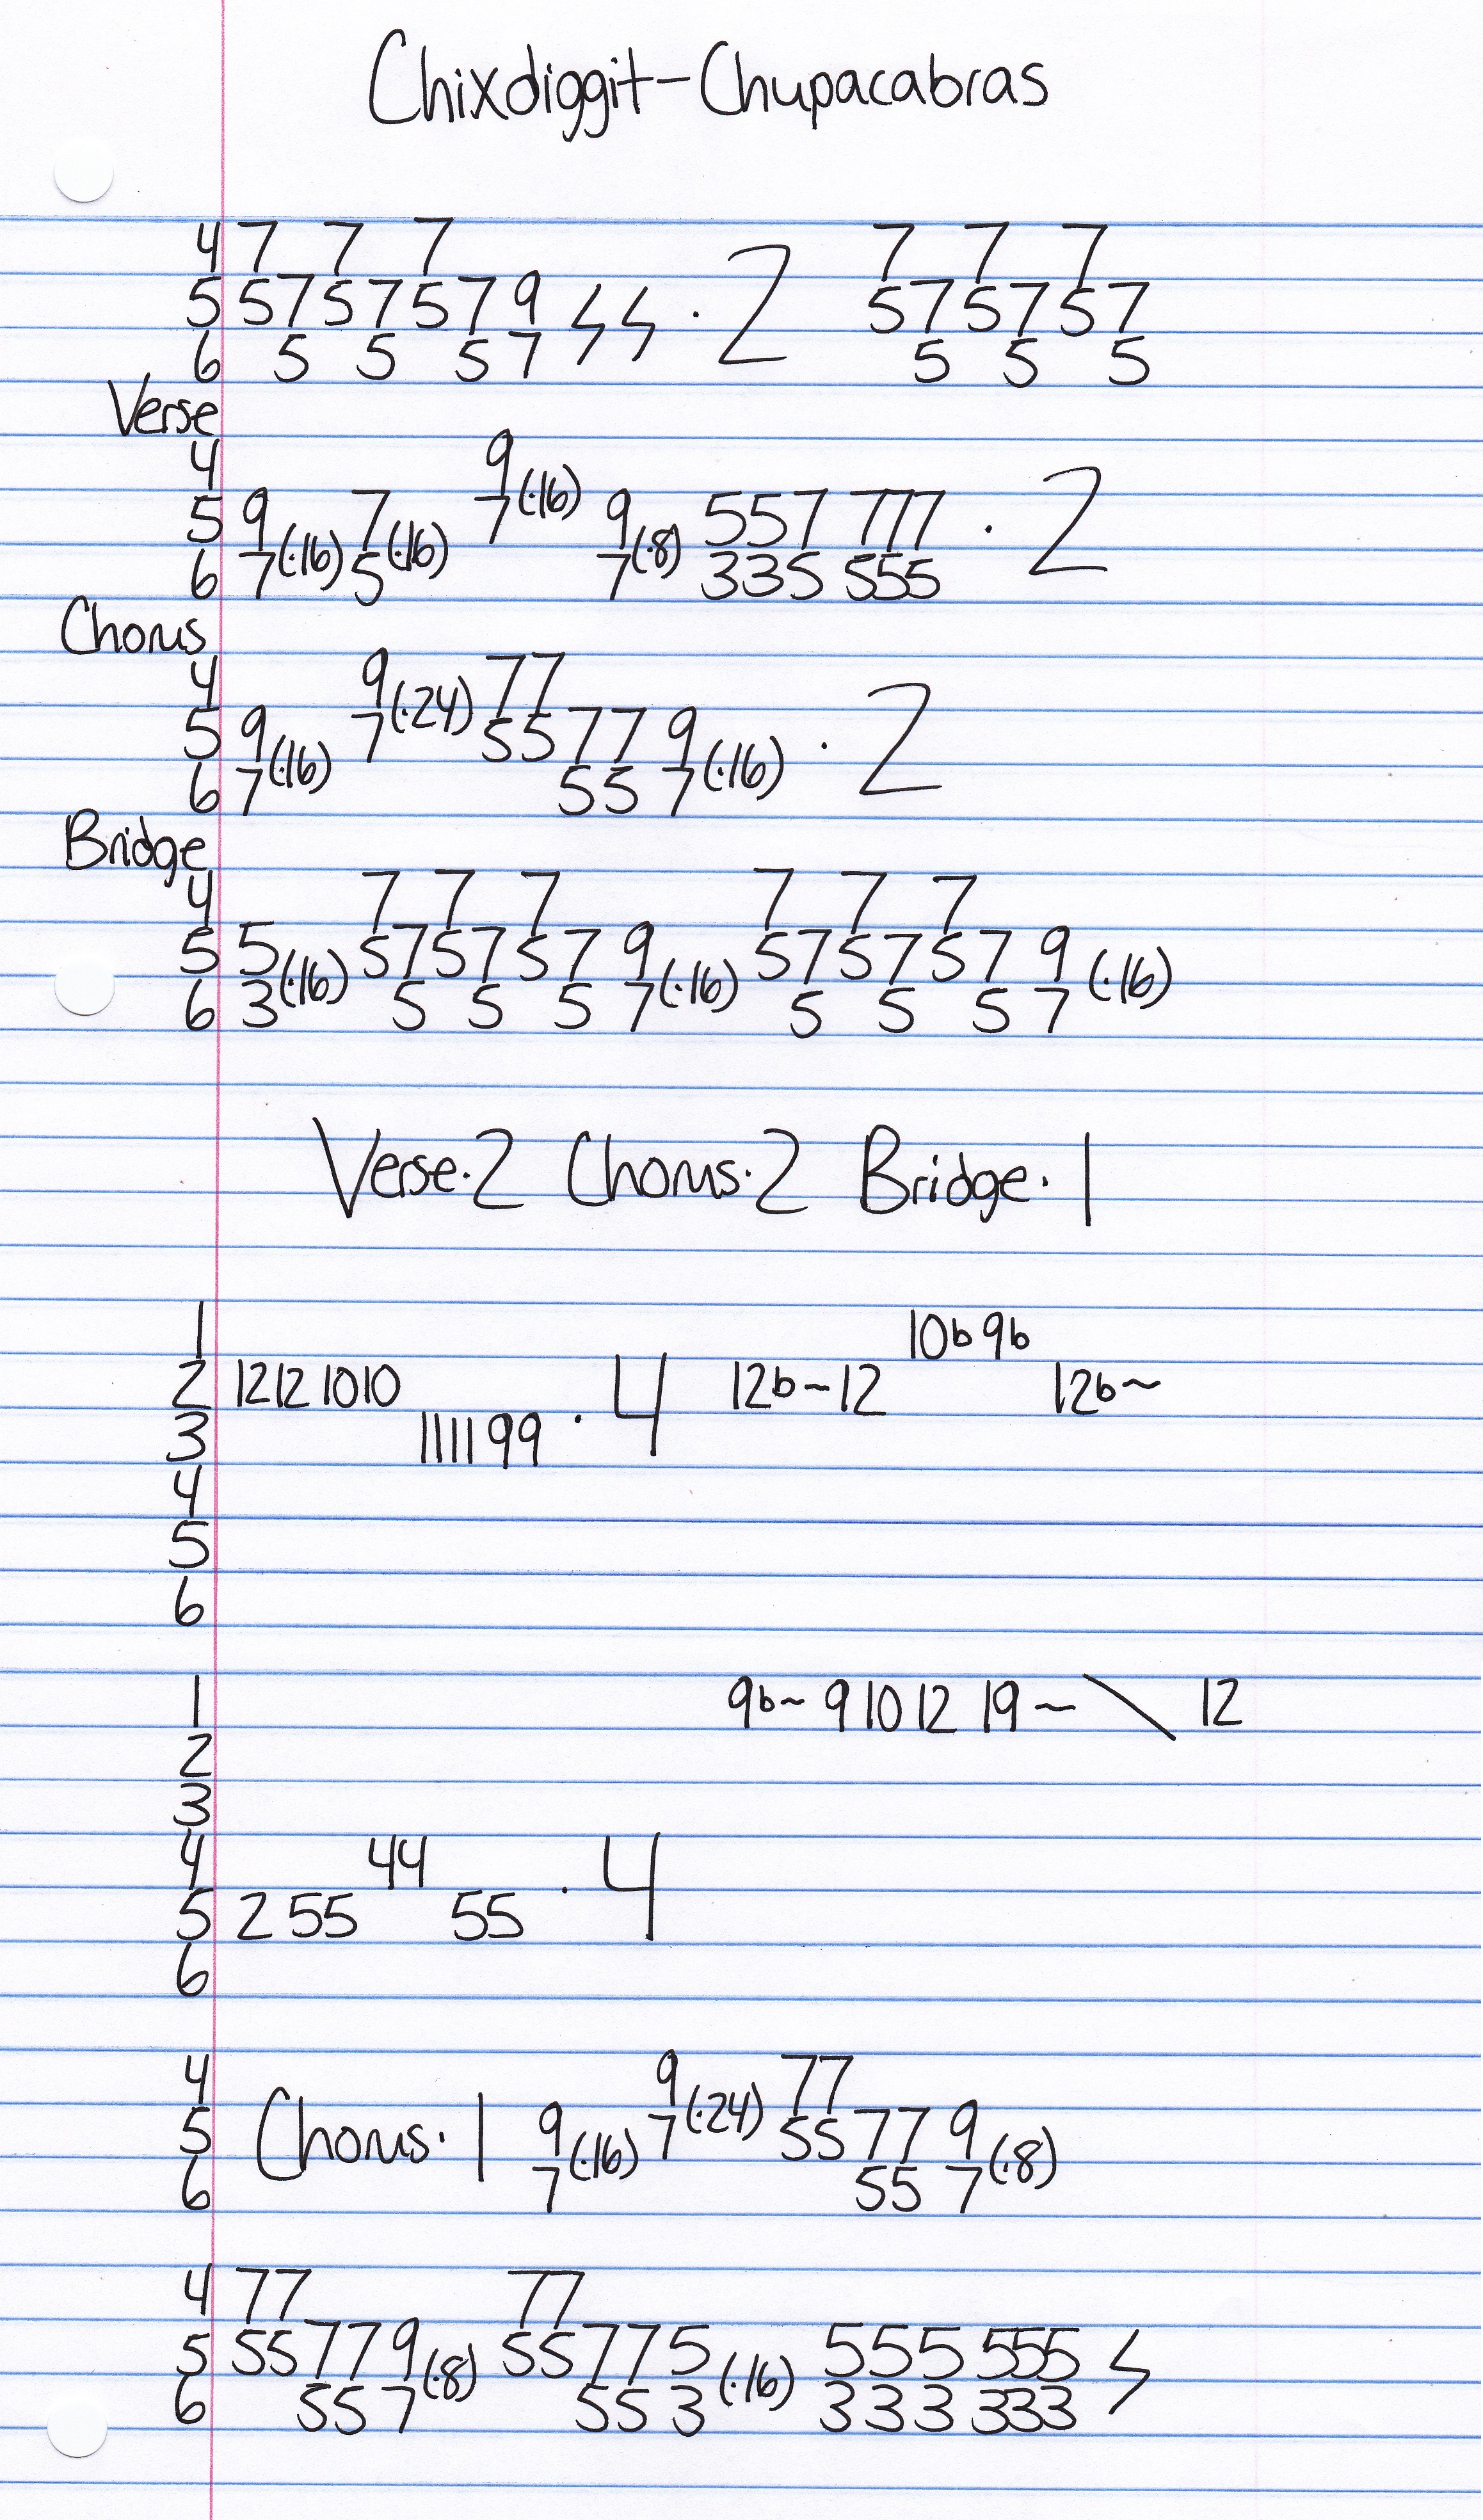 Chixdiggit-Chupacabras
4 7 7 7 7 7 7
5 57 57 57 9 ϟϟ · 2 57 57 57
6 5 5 5 7 5 5 5
Verse
4 9
5 9 7 7(·16) 9 557 777 · 2
6 7(·16) 5(·16) 7(·8) 335 555
Chorus
4 9 77
5 9 7(·24) 55 77 9 · 2
6 7(·16) 55 7(·16)
Bridge
4 7 7 7 7 7 7
5 5 57 57 57 9 57 57 57 9
6 3(·16) 5 5 5 7(·16) 5 5 5 7(·16)
Verse·2 Chorus·2 Bridge·1
1 10b 9b
2 12 12 10 10 12b~12 12b~
3 11 11 9 9 · 4
4
5
6
1 9b~ 9 10 12 19~\ 12
2
3
4 44
5 2 55 55 · 4
6
4 9 77
5 Chorus·1 9 7(·24) 55 77 9
6 7(·16) 55 7(·8)
4 77 77
5 55 77 9 55 77 5 555 555 ϟ
6 55 7(·8) 55 3(·16) 333 333